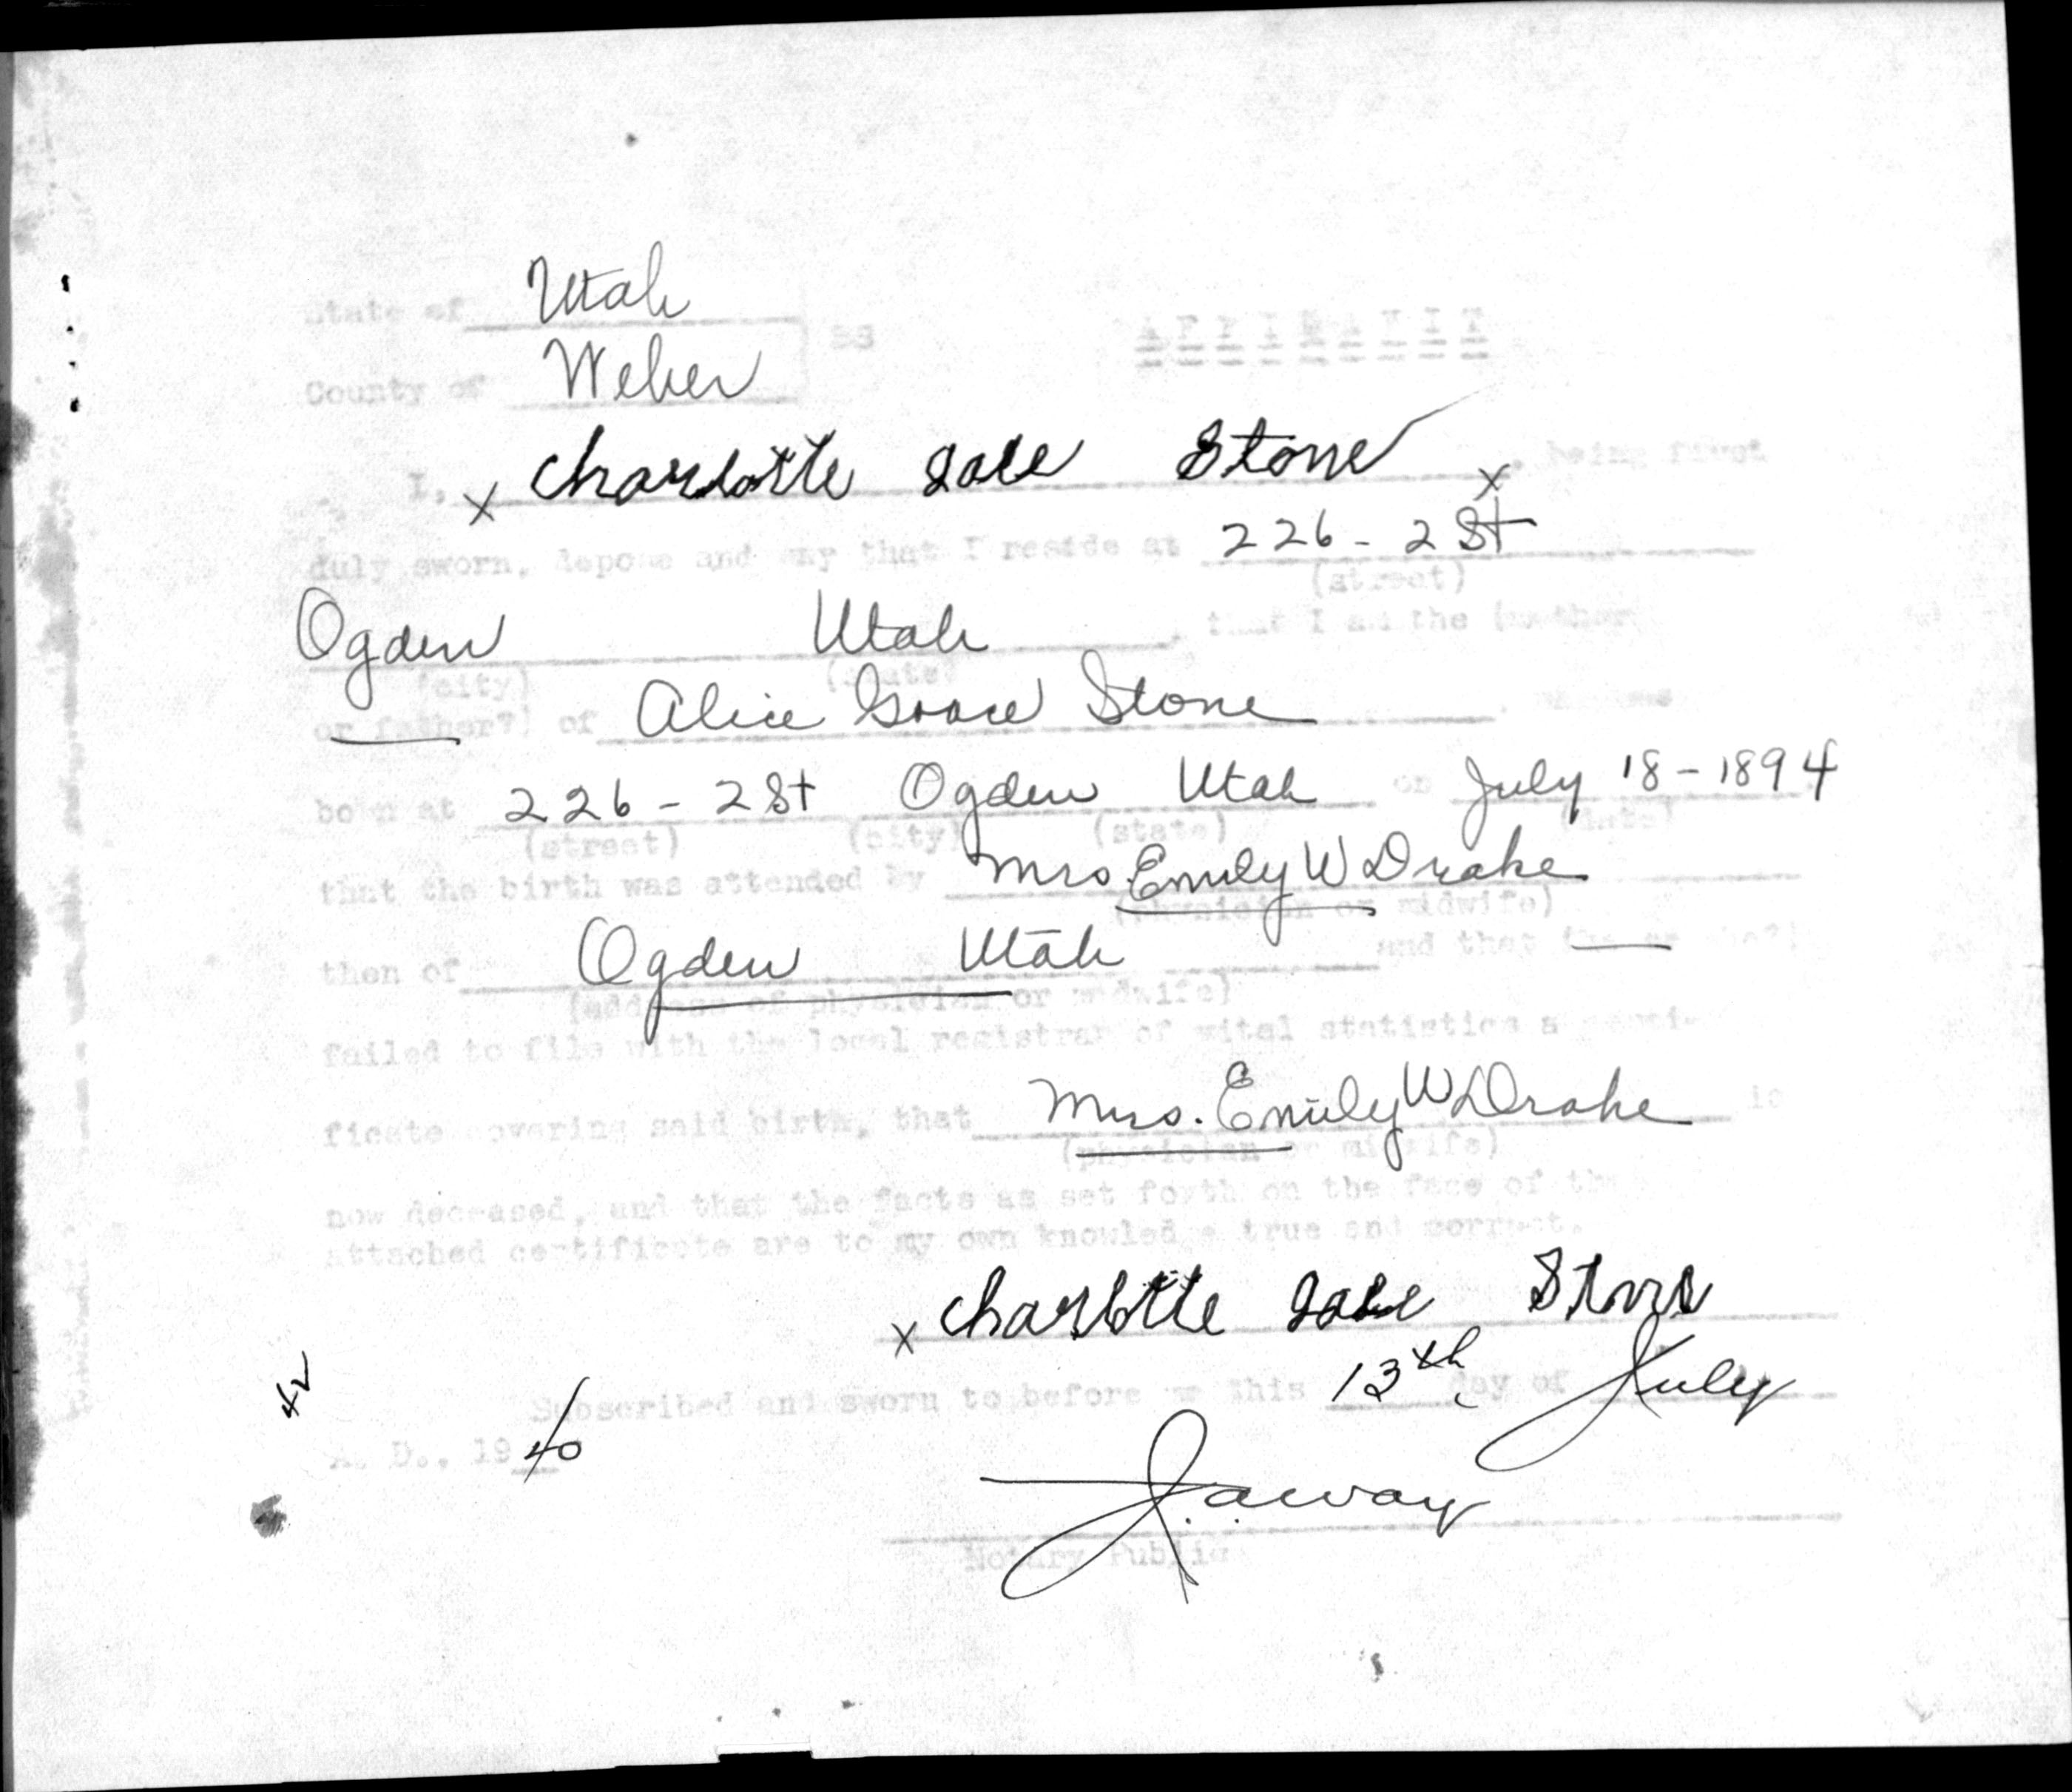 State of Utah
SS AFFIDAVIT
County of Weber
I, x Charlotte Stone x, being first
duly sworn, depose and say that I reside at 226 - 2 St
(street)
Ogden Utah, that I am the (mother
(city) (state)
or father?) of Alice Grace Stone, who was
born at 226 - 2 St Ogden Utah on July 18 - 1894
(street) (city) (state) (date)
that the birth was attended by Mrs. Emily W Drake
(physician or midwife)
then of Ogden Utah and that the
(address of physician or midwife)
failed to file with the local registrar of vital statistics a certi-
ficate covering said birth, that Mrs. Emily W Drake is
(physician or midwife)
now deceased, and that the facts as set forth on the face of the
attached certificate are to my own knowledge true and correct.
x Charlotte Stone
Subscribed and sworn to before me this 13th day of July
A. D., 1940
42
J. A. Way
Notary Public